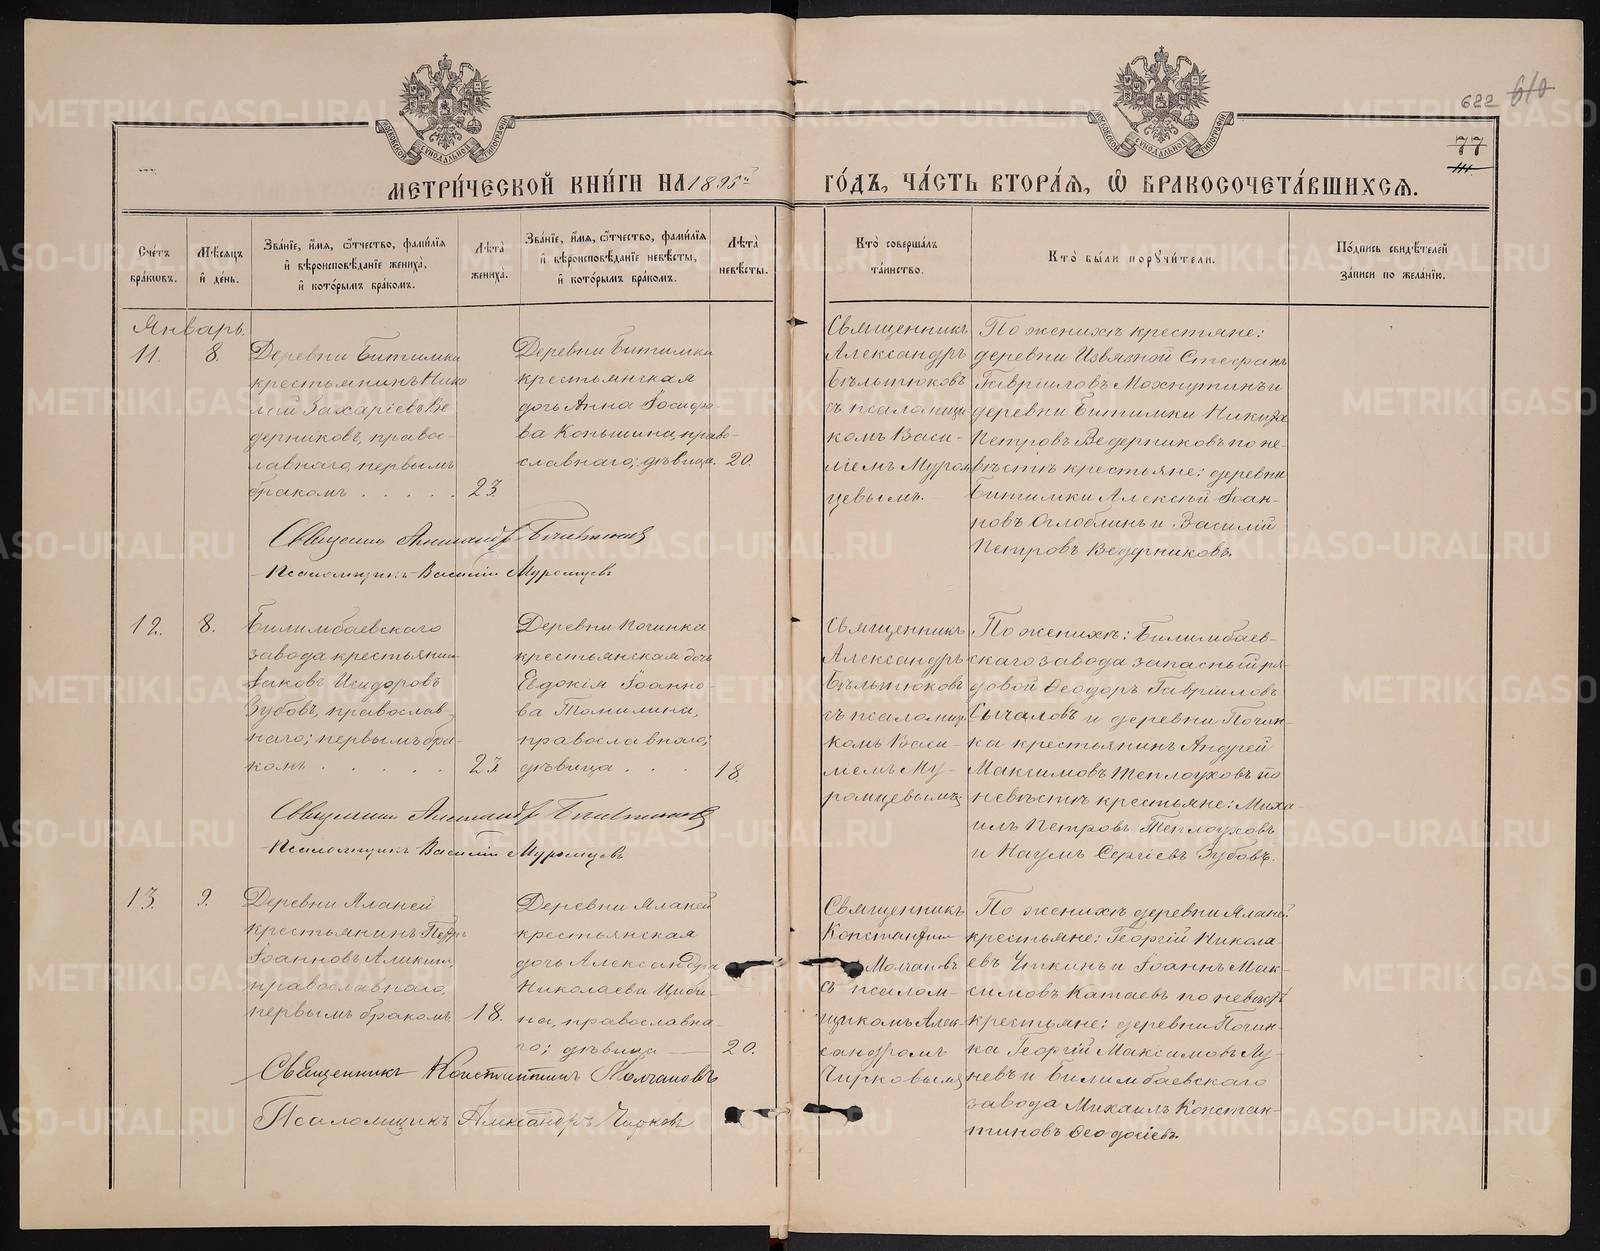 622 610
77
МЕТРИ́ЧЕСКОЙ КНИ́ГИ НА 1895й ГО́ДЪ, ЧА́СТЬ ВТОРА́Я, Ѽ БРАКОСОЧЕТА́ВШИХСЯ.
Сче́тъ бра́ковъ.
Мѣ́сяцъ и́ де́нь.
Зва́нїе, и́мя, ѻ́тчество, фами́лїя и́ вѣроисповѣ́данїе жениха̀, и́ кото́рымъ бра́комъ.
Лѣ́та жениха̀.
Зва́нїе, и́мя, ѻ́тчество, фами́лїя и́ вѣроисповѣ́данїе невѣ́сты, и́ кото́рымъ бра́комъ.
Лѣ́та невѣ́сты.
Кто̀ соверша́лъ та́инство.
Кто̀ бы́ли порꙋчи́тели.
По́дпись свидѣ́телей за́писи по жела́нїю.
Январь.
11.
8.
Деревни Битимки
крестьянинъ Нико
лай Захаріевъ Ве
дерниковъ, правос-
лавнаго, первымъ
бракомъ . . . . .
23.
Деревни Битимки
крестьянская
дочь Анна Іосифо-
ва Копышина, право-
славнаго; дѣвица.
20.
Священникъ
Александръ
Бѣльтюковъ
съ псаломщи
комъ Васи-
ліемъ Муром
цевымъ.
По женихѣ крестьяне:
деревни Извязной Стефанъ
Гавріиловъ Махнутинъ и
деревни Битимки Никита
Петровъ Ведерниковъ по не-
вѣстѣ крестьяне: деревни
Битимки Алексѣй Іоан-
новъ Оглоблинъ и Василій
Петровъ Ведерниковъ.
Священникъ Александръ Бѣльтюковъ
Псаломщикъ Василій Муромцевъ
12.
8.
Билимбаевскаго
завода крестьянин
Іаковъ Исидоровъ
Зубовъ, православ-
наго; первымъ бра-
комъ . . . . . .
23.
Деревни Починка
крестьянская дочь
Евдокія Іоанно-
ва Томилина,
православнаго;
дѣвица . . .
18.
Священникъ
Александръ
Бѣльтюковъ
съ псаломщи
комъ Васи-
ліемъ Му-
ромцевымъ
По женихѣ: Билимбаев-
скаго завода запасный ря-
довой Ѳеодоръ Гавріиловъ
Сычаловъ и деревни Почин-
ка крестьянинъ Андрей
Максимовъ Теплоуховъ по
невѣстѣ крестьяне: Миха-
илъ Петровъ Теплоуховъ
и Наумъ Сергіевъ Зубовъ.
Священникъ Александръ Бѣльтюковъ
Псаломщикъ Василій Муромцевъ
13.
9.
Деревни Яланей
крестьянинъ Петръ
Іоанновъ Аликинъ,
православнаго,
первымъ бракомъ
18.
Деревни Яланей
крестьянская
дочь Александра
Николаева Циби-
на, православна-
го; дѣвица
20.
Священникъ
Константинъ
Молчановъ
съ псалом-
щикомъ Алек-
сандромъ
Чирковымъ
По женихѣ деревни Яланей
крестьяне: Георгій Никола-
евъ Упкинъ и Іоаннъ Мак-
симовъ Катаевъ по невѣстѣ
крестьяне: деревни Почин-
ка Георгій Максимовъ Лу-
невъ и Билимбаевскаго
завода Михаилъ Констан-
тиновъ Ѳеодосіевъ.
Священникъ Константинъ Молчановъ
Псаломщикъ Александръ Чирковъ
METRIKI.GASO-URAL.RU